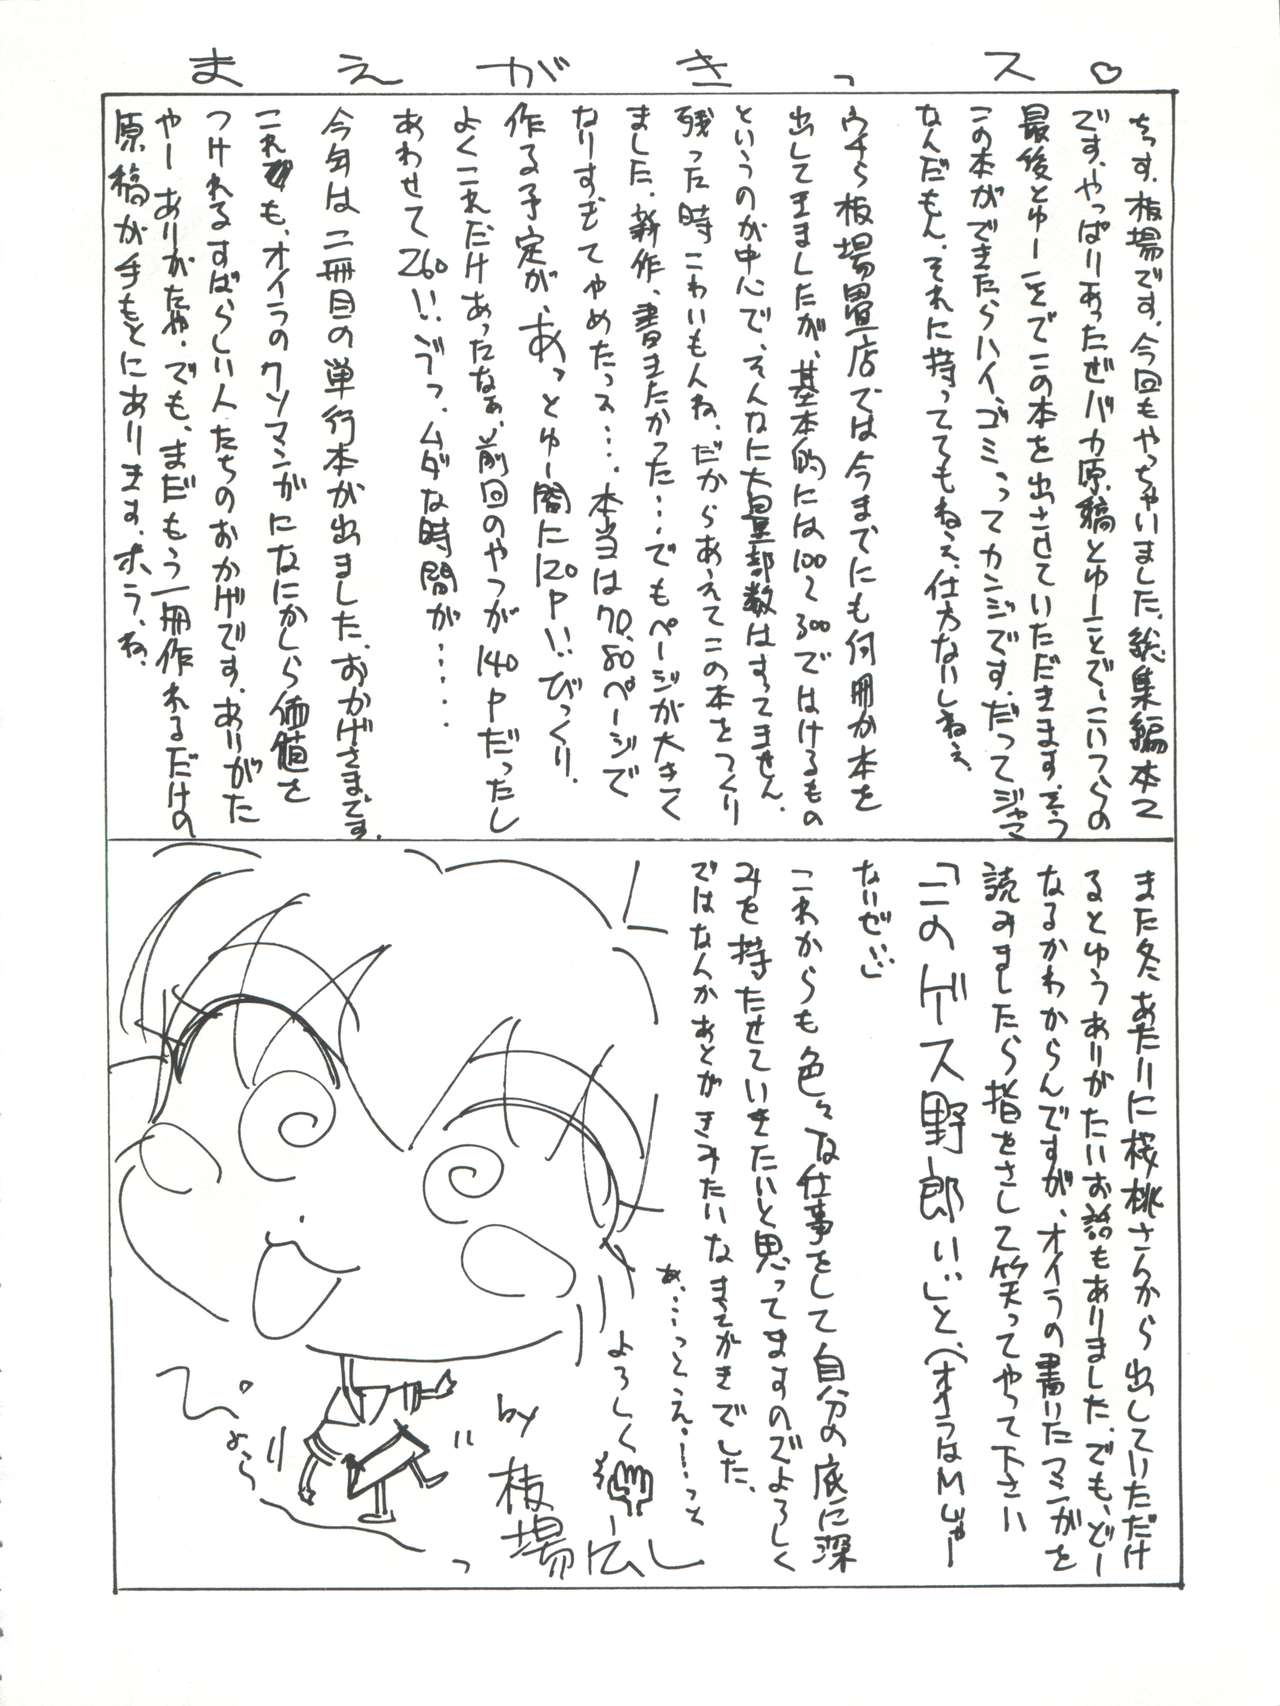 まえがきっス♡
ちっす。板場です。今回もやっちゃいました。総集編本2
です。やっぱりあったぜバカ原稿とゆーことで、こいつらの
最後とゆーことでこの本を出させていただきます。そう
この本ができたらハイ、ゴミってカンジです。だってジャマ
なんだもん。それに持っててもねぇ、仕方ないしねぇ。
ウチら板場畳店では今までにも何冊か本を
出してきましたが、基本的には100〜300ではけるもの
というのが中心で、そんなに大量部数はすってません。
残った時こわいもんね。だからあえてこの本をつくり
ました。新作、書きたかった…。でもページが大きく
なりすぎてやめたっス…。本当は70、80ページで
作る予定が、あっとゆー間に120P!!びっくり。
よくこれだけあったなぁ。前回のやつが140Pだったし
あわせて260!!ゔっ、ムダな時間が……
今年は二冊目の単行本が出ました。おかげさまです。
これも、オイラのクソマンガになにかしら価値を
つけれるすばらしい人たちのおかげです。ありがた
やーありがたや。でも、まだもう一冊作れるだけの
原稿が手もとにありきます。ホラ、ね。
また冬あたりに桜桃さんから出していただけ
るとゆうありがたいお話もありました。でも、どー
なるかわからんですが、オイラの書いたマンガを
読みましたら指をさして笑ってやって下さい
「このゲス野郎!!」と、(オイラはMじゃー
ないぜ!!)
これからも色々な仕事をして自分の底に深
みを持たせていきたいと思ってますのでよろしく
ではなんかあとがきみたいなまえがきでした。
あ…っとえ…っと
よろしく
by
板場広し
ぴょろっ